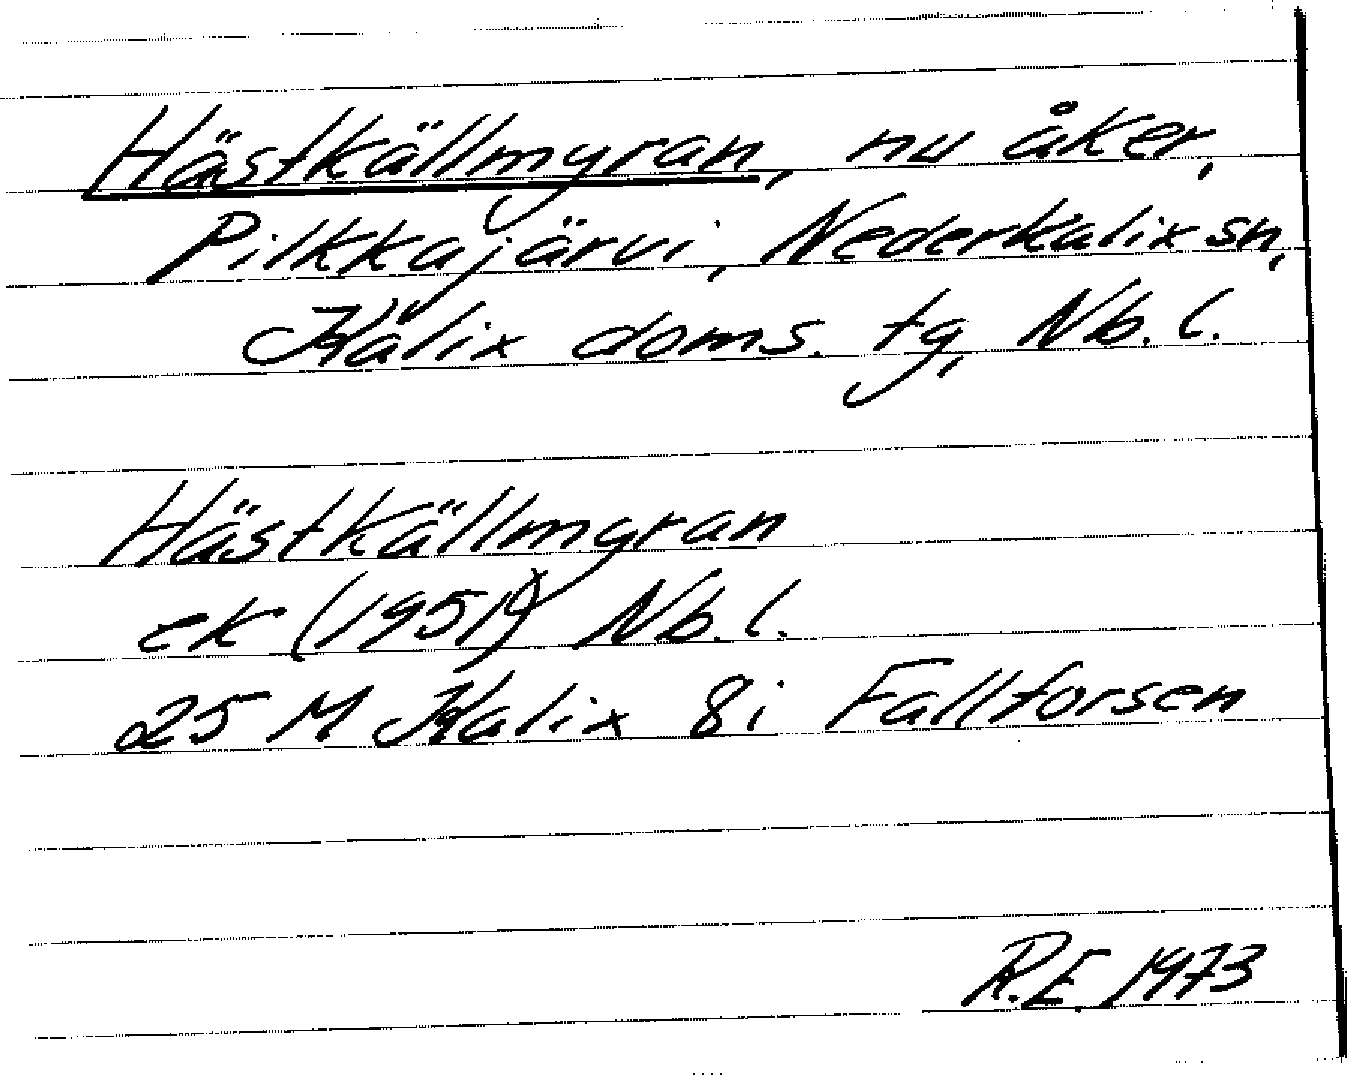 Hästkällmyran, nu åker,
Pilkkajärvi, Nederkalix sn,
Kalix doms. tg, Nb. l.
Hästkällmyran
ek (1951) Nb. l.
25 M Kalix 8i Fallforsen
R.E. 1973